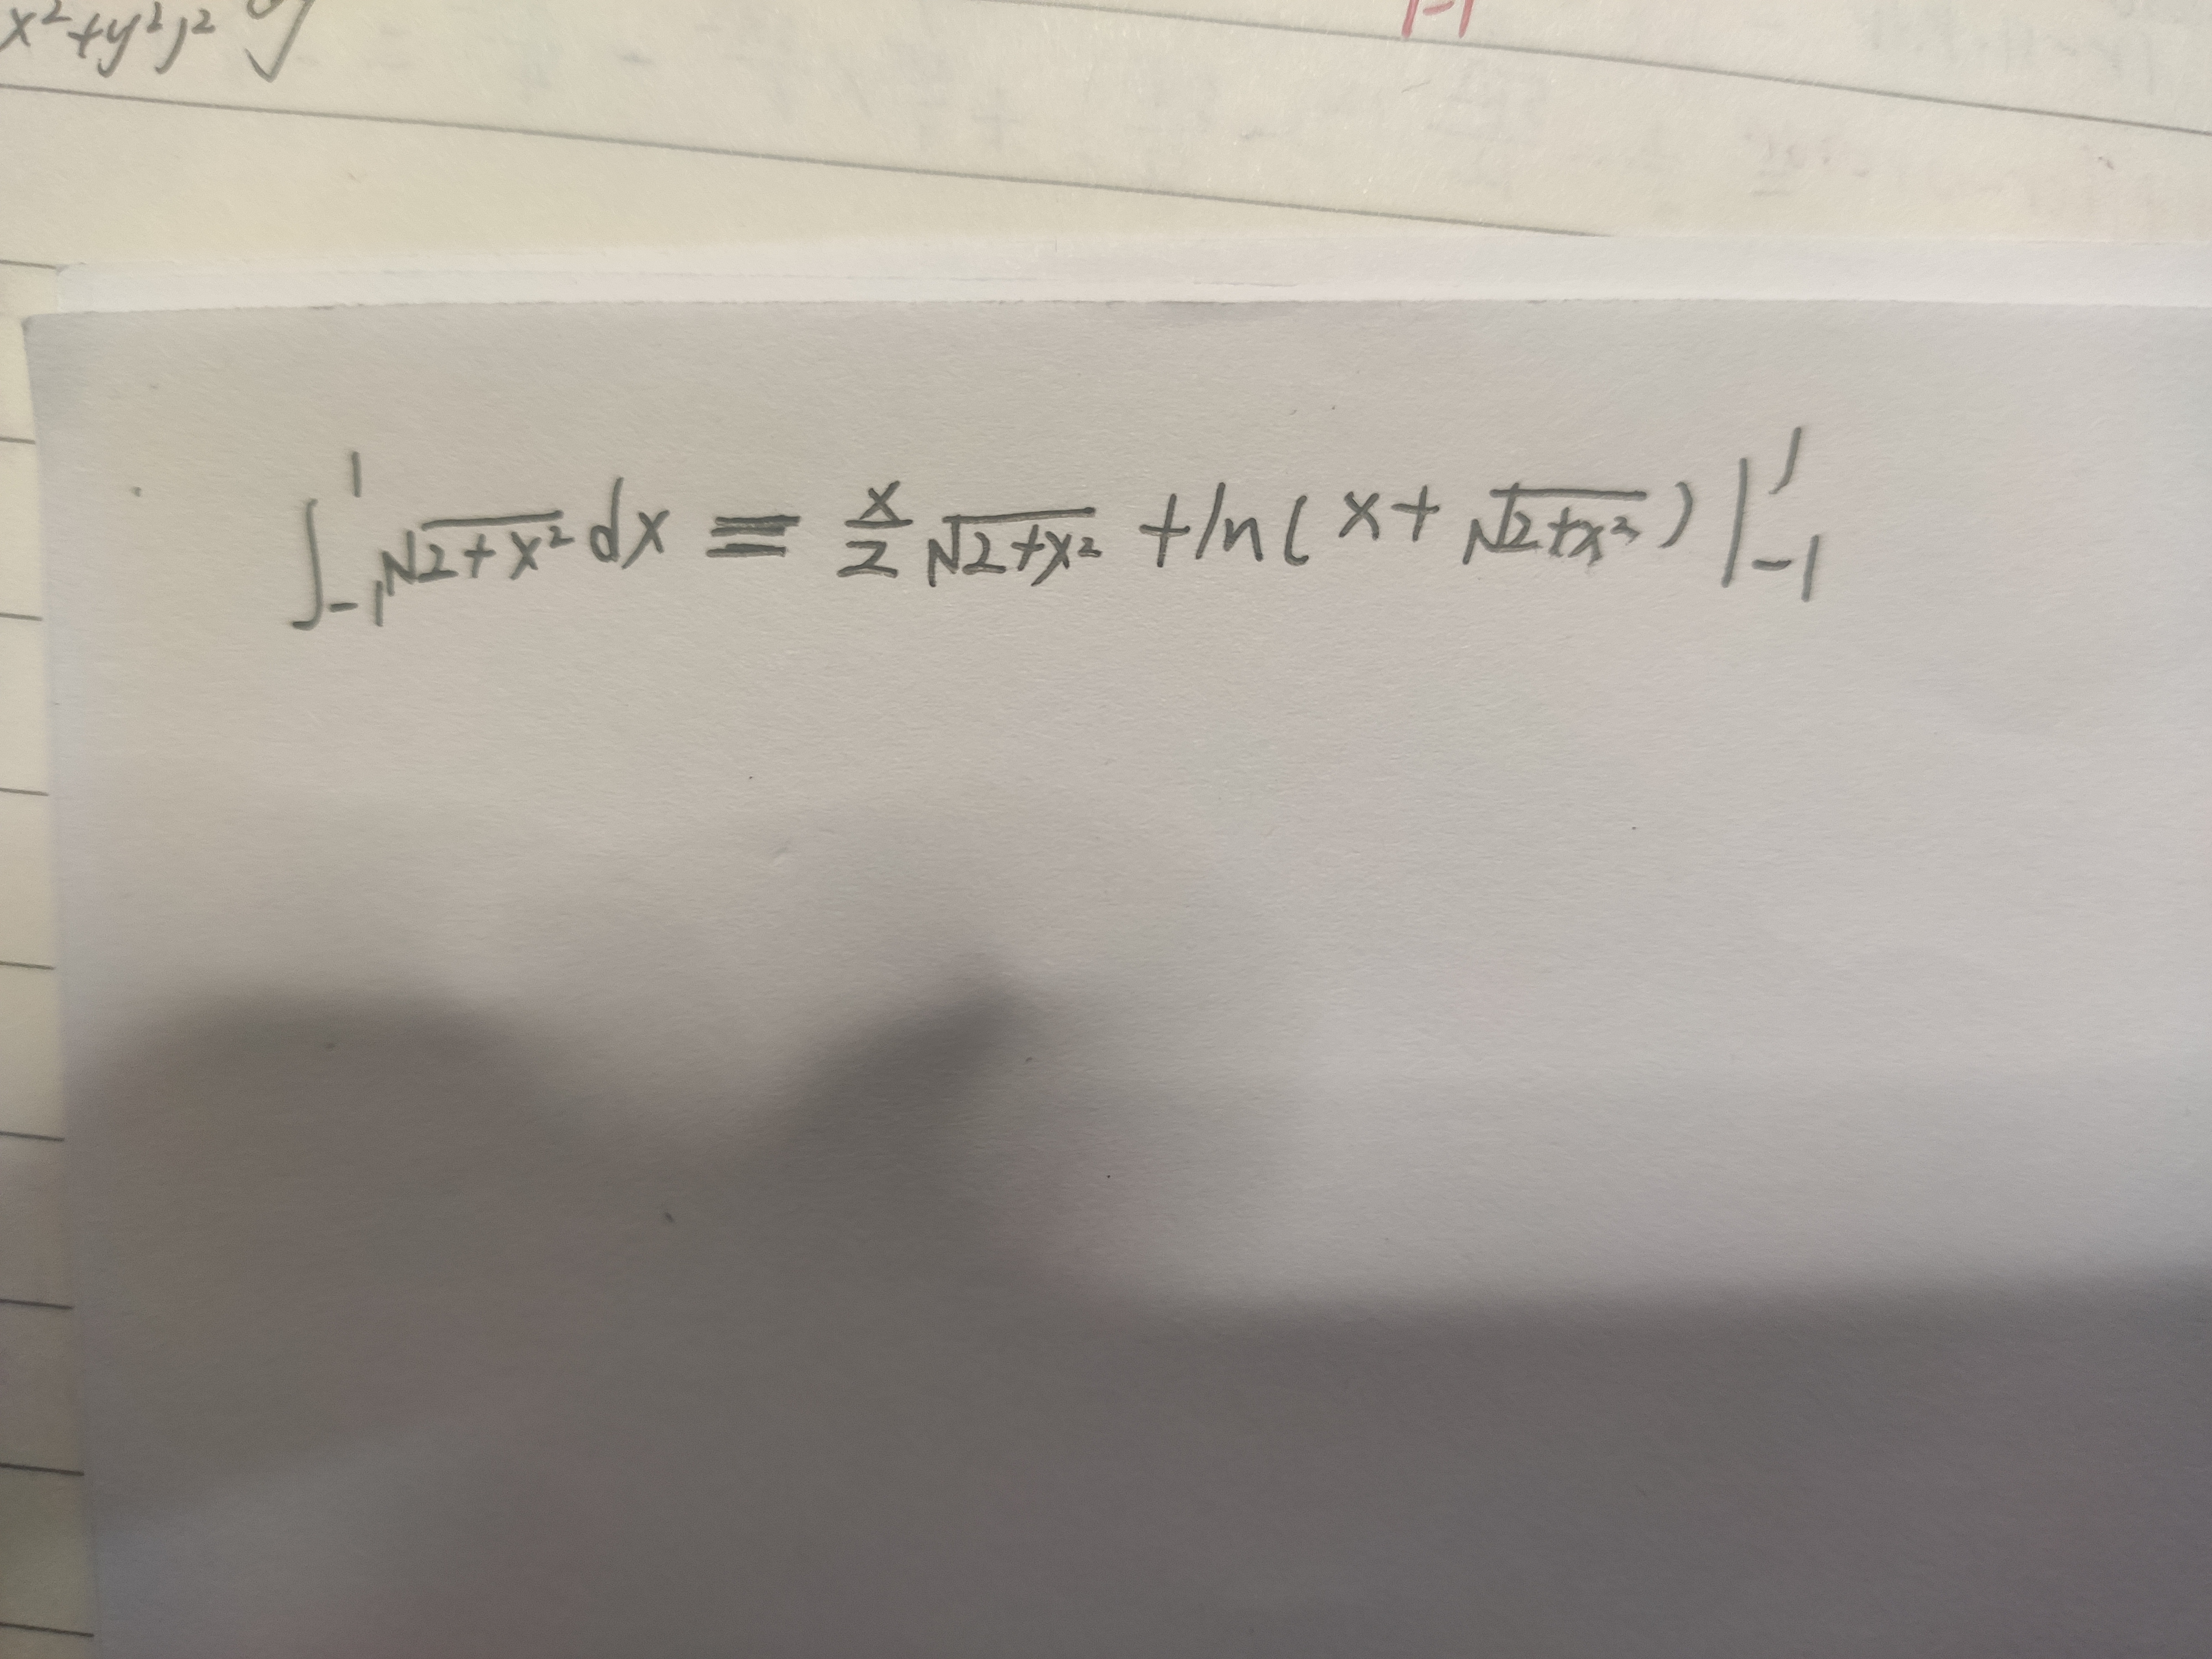 x²+y²)²
∫₋₁¹ √(2+x²) dx = x/2 √(2+x²) + ln(x+√(2+x²)) |₋₁¹